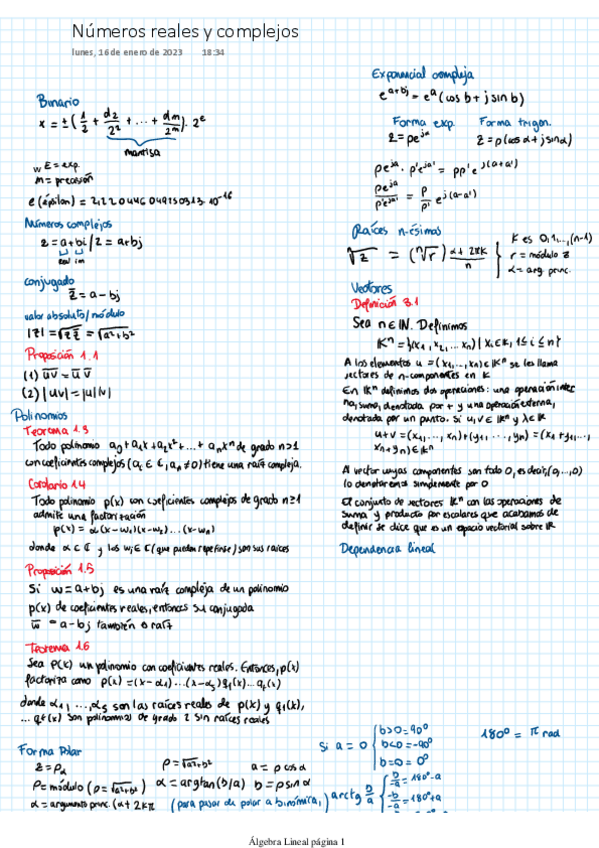 Números reales y complejos
lunes, 16 de enero de 2023 18:34
Binario
x = ±(1/2 + d2/2² + ... + dm/2^m)·2^e
mantisa
E = exp.
m = precisión
e (épsilon) = 2,220446049250313·10^-16
Números complejos
z = a+bi / z = a+bj
real im
conjugado
z̅ = a-bj
valor absoluto/módulo
|z| = √(z z̅) = √(a²+b²)
Proposición 1.1
(1) u̅v̅ = u̅ v̅
(2) |uv| = |u||v|
Polinomios
Teorema 1.3
Todo polinomio a0 + a1x + a2x² + ... + anx^n de grado n≥1
con coeficientes complejos (ai ∈ ℂ, an ≠ 0) tiene una raíz compleja.
Corolario 1.4
Todo polinomio p(x) con coeficientes complejos de grado n≥1
admite una factorización
p(x) = α(x-w1)(x-w2)...(x-wn)
donde α ∈ ℂ y los wi ∈ ℂ (que pueden repetirse) son sus raíces
Proposición 1.5
Si w = a+bj es una raíz compleja de un polinomio
p(x) de coeficientes reales, entonces su conjugada
w̅ = a-bj también es raíz
Teorema 1.6
Sea P(x) un polinomio con coeficientes reales. Entonces, p(x)
factoriza como p(x) = (x-α1)...(x-αs)q1(x)...qt(x)
donde α1, ..., αs son las raíces reales de p(x) y q1(x),
... qt(x) son polinomios de grado 2 sin raíces reales
Forma Polar
z = ρα
ρ = √(a²+b²)
a = ρ cos α
ρ = módulo (ρ = √(a²+b²)) α = argtan(b/a) b = ρ sin α
α = argumento princ. (α + 2kπ (para pasar de polar a binómica,)
Exponencial compleja
e^(a+bj) = e^a (cos b + j sin b)
Forma exp. Forma trigon.
z = ρe^(jα) z = ρ(cos α + j sin α)
ρe^(jα) · ρ'e^(jα') = ρρ' e^(j(α+α'))
ρe^(jα) / ρ'e^(jα') = ρ/ρ' e^(j(α-α'))
Raíces n-ésimas
ⁿ√z = (ⁿ√r) (α + 2πk)/n
k es 0,1,...,(n-1)
r = módulo z
α = arg. princ.
Vectores
Definición 3.1
Sea n ∈ ℕ. Definimos
𝕂^n = {(x1, x2, ... xn) | xi ∈ 𝕂, 1 ≤ i ≤ n}
A los elementos u = (x1, ..., xn) ∈ 𝕂^n se les llama
vectores de n-componentes en 𝕂
En 𝕂^n definimos dos operaciones: una operación inter
na, suma, denotada por + y una operación externa,
denotada por un punto. Si u, v ∈ 𝕂^n y λ ∈ 𝕂
u+v = (x1, ..., xn) + (y1, ..., yn) = (x1+y1, ...,
xn+yn) ∈ 𝕂^n
Al vector cuyas componentes son todo 0, es decir, (0,...,0)
lo denotaremos simplemente por 0
El conjunto de vectores 𝕂^n con las operaciones de
suma y producto por escalares que acabamos de
definir se dice que es un espacio vectorial sobre 𝕂
Dependencia lineal
Si a = 0
b>0 = 90°
b<0 = -90°
b=0 = 0°
180° = π rad
arctg b/a
b/-a = 180°-α
-b/-a = 180°+α
Álgebra Lineal página 1